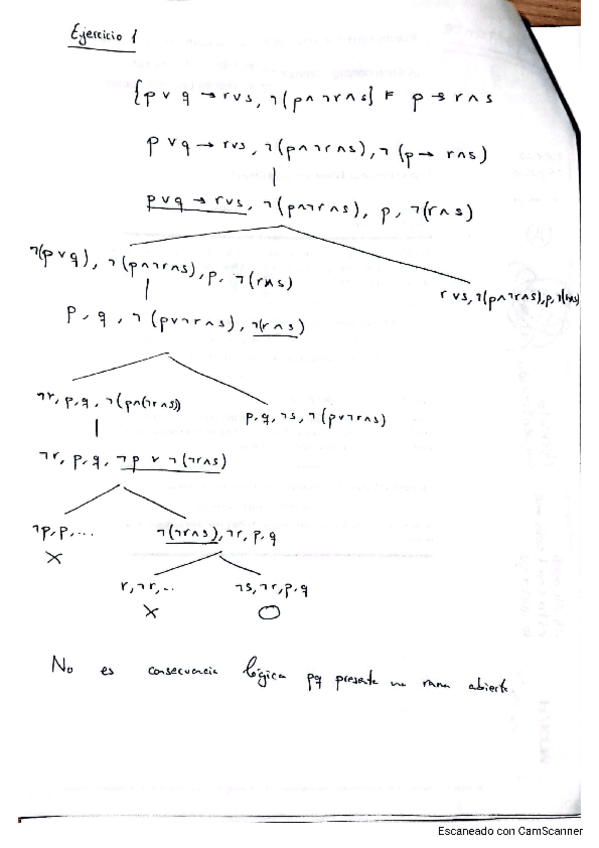 Ejercicio 1
{p ∨ q → r∨s, ¬(p∧¬r∧s} ⊨ p → r∧s
p ∨ q → r∨s, ¬(p∧¬r∧s), ¬(p → r∧s)
p∨q → r∨s, ¬(p∧¬r∧s), p, ¬(r∧s)
¬(p∨q), ¬(p∧¬r∧s), p, ¬(r∧s)
r∨s, ¬(p∧¬r∧s), p, ¬(r∧s)
p, q, ¬(p∨¬r∧s), ¬(r∧s)
¬r, p, q, ¬(p∧(¬r∧s))
p, q, ¬s, ¬(p∨¬r∧s)
¬r, p, q, ¬p ∨ ¬(¬r∧s)
¬p, p, ...
¬(¬r∧s), ¬r, p, q
×
r, ¬r, ..
¬s, ¬r, p, q
×
○
No es consecuencia lógica pq presenta una rama abierta.
Escaneado con CamScanner